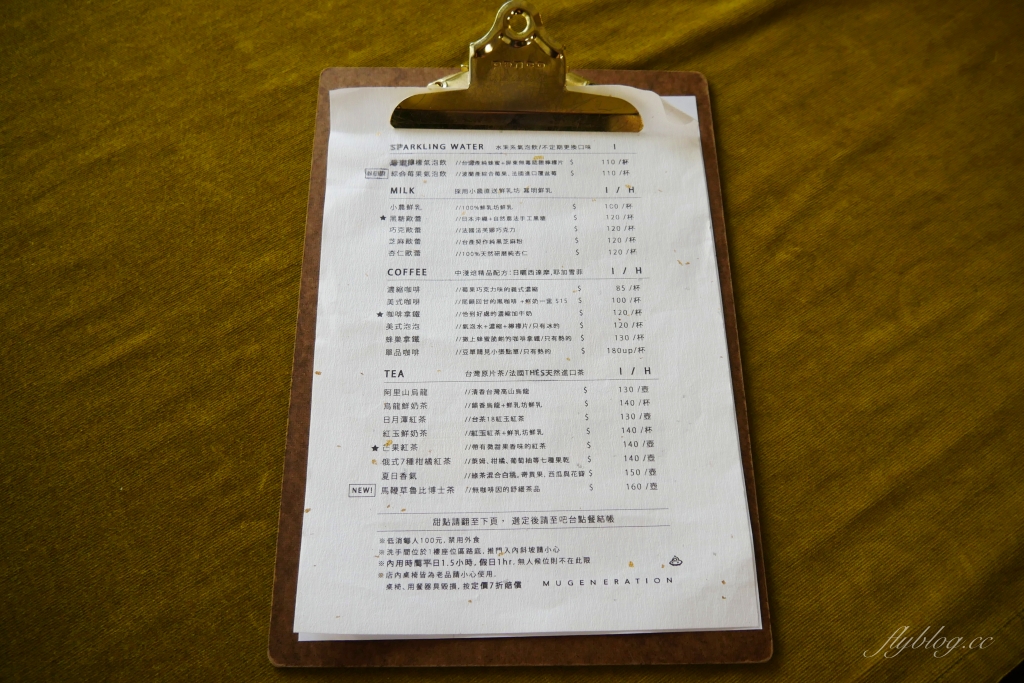 SPARKLING WATER 水果系氣泡飲/不定期更換口味 I
檸檬氣泡飲 //台灣產純蜂蜜+屏東無毒認證檸檬片 $ 110 /杯
綜合莓果氣泡飲 //波蘭產綜合莓果、法國進口覆盆莓 $ 110 /杯
MILK 採用小農直送鮮乳坊 嘉明鮮乳 I / H
小農鮮乳 //100%鮮乳坊鮮乳 $ 100 /杯
★ 黑糖歐蕾 //日本沖繩+自然農法手工黑糖 $ 120 /杯
巧克歐蕾 //法國法芙娜巧克力 $ 120 /杯
芝麻歐蕾 //台產製作純黑芝麻粉 $ 120 /杯
杏仁歐蕾 //100%天然研磨純杏仁 $ 120 /杯
COFFEE 中淺焙精品配方:日曬西達摩,耶加雪菲 I / H
濃縮咖啡 //莓果巧克力味的義式濃縮 $ 85 /杯
美式咖啡 //尾韻回甘的黑咖啡 +鮮奶一盅 $15 $ 100 /杯
★ 咖啡拿鐵 //恰到好處的濃縮加牛奶 $ 120 /杯
美式泡泡 //氣泡水+濃縮+檸檬片/只有冰的 $ 120 /杯
蜂巢拿鐵 //撒上蜂蜜脆餅的咖啡拿鐵/只有熱的 $ 130 /杯
單品咖啡 //豆單請見小張點單/只有熱的 $ 180up/杯
TEA 台灣原片茶/法國THÉS天然進口茶 I / H
阿里山烏龍 //清香台灣高山烏龍 $ 130 /壺
烏龍鮮奶茶 //醇香烏龍+鮮乳坊鮮乳 $ 140 /杯
日月潭紅茶 //台茶18紅玉紅茶 $ 130 /壺
紅玉鮮奶茶 //紅玉紅茶+鮮乳坊鮮乳 $ 140 /杯
★ 芒果紅茶 //帶有微甜果香味的紅茶 $ 140 /壺
俄式7種柑橘紅茶 //萊姆、柑橘、葡萄柚等七種果乾 $ 140 /壺
夏日香氣 //綠茶混合白桃、奇異果、西瓜與花瓣 $ 150 /壺
NEW! 馬鞭草魯比博士茶 //無咖啡因的舒緩茶品 $ 160 /壺
甜點請翻至下頁, 選定後請至吧台點餐結帳
※低消每人100元,禁用外食
※洗手間位於1樓座位區路底,推門入內斜坡請小心
※內用時間平日1.5小時,假日1hr,無人候位則不在此限
※店內桌椅皆為老品請小心使用,
桌椅、用餐器具毀損,按定價7折賠償 MUGENERATION
flyblog.cc